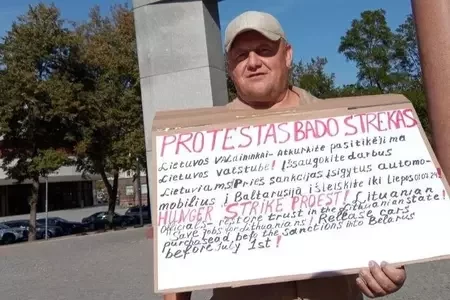 PROTESTAS BADO STREKAS
Lietuvos Valdininkai - Atkurkite pasitikėjimą
Lietuvos valstube! Išsaugokite darbus
Lietuviams! Prieš sankcijas įsigytus automo-
mobilius į Baltarusiją išleiskite iki Liepos 01.07.24!
HUNGER STRIKE PROEST! Lituanian
Officials - restore trust in the Lithuanian state!
Save jobs for lithuanians! Release cars
purchasead befo the sanctions into Belarus
before July 1st!